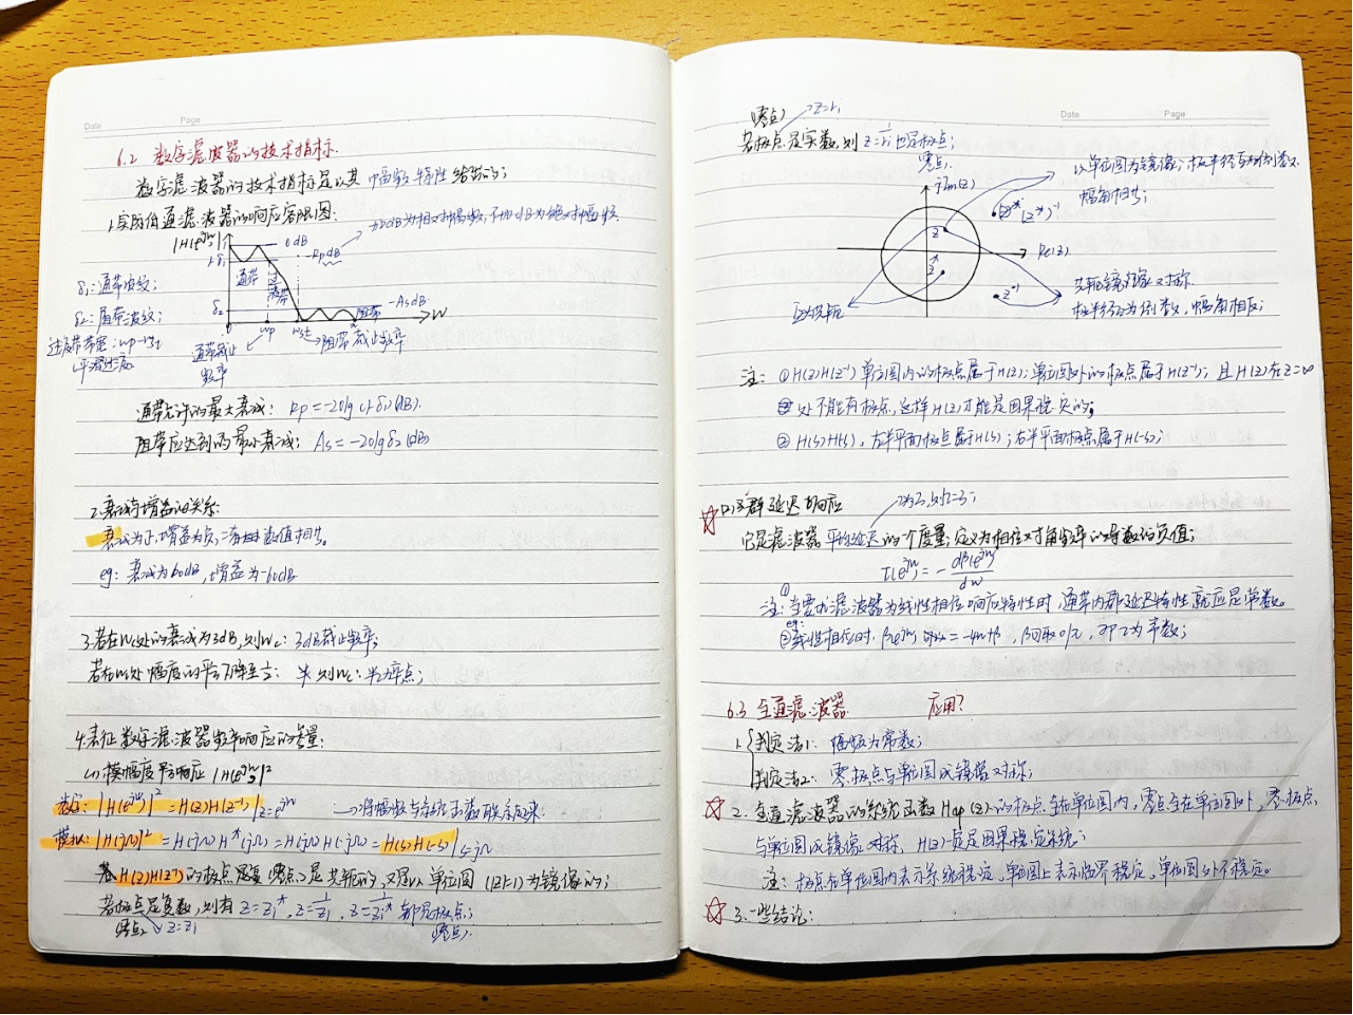 Date Page
6.2 数字滤波器的技术指标.
数字滤波器的技术指标是以其幅频特性给出的;
1.实际低通滤波器的响应容限图:
|H(e^jw)|
0dB
-RpdB
加dB为相对幅度, 不加dB为绝对幅度.
1-δ₁
通带
δ₁:通带波纹;
δ₂
阻带
-AsdB
w
δ₂:阻带波纹;
wp
wst
过渡带带宽:wp→wst
平滑过渡
通带截止频率
阻带截止频率
通带允许的最大衰减: Rp=-20lg(1-δ₁)(dB).
阻带应达到的最小衰减: As=-20lgδ₂(dB)
2.衰减与增益的关系:
衰减为正,增益为负,二者数值相等。
eg: 衰减为60dB,增益为-60dB
3.若在wc处的衰减为3dB,则wc: 3dB截止频率;
若在wc处幅度的平方下降至½: 则wc:半功率点;
4.表征数字滤波器频率响应的参量:
(1)模幅度平方响应 |H(e^jw)|²
数字: |H(e^jw)|²=H(z)H(z⁻¹)|z=e^jw →将幅频与系统函数联系起来.
模拟: |H(jΩ)|²=H(jΩ)H*(jΩ)=H(jΩ)H(-jΩ)=H(s)H(-s)|s=jΩ
H(z)H(z⁻¹)的极点(零点)是共轭的,又是以单位圆(|z|=1)为镜像的;
若极点是复数,则有z=zi*, z=1/zi, z=1/zi* 都是极点;
零点 z=zi (零点)
Date Page
(零点) z=ri
若极点是实数,则z=1/ri也是极点;
零点.
jIm(z)
以单位圆为镜像;极半径互为倒数.
幅角相等;
(z*)⁻¹
z
Re(z)
z*
z⁻¹
互为共轭
共轭镜像对称.
极半径为倒数,幅角相反;
注: ①H(z)H(z⁻¹)单位圆内的极点属于H(z);单位圆外的极点属于H(z⁻¹); 且H(z)在z=∞
处不能有极点,这样H(z)才能是因果稳定的;
②H(s)H(-s),左半平面极点属于H(s);右半平面极点属于H(-s);
(2)群延迟响应
它是滤波器平均延迟的一个度量;定义为相位对角频率的导数的负值;
τ(e^jw)=-dβ(e^jw)/dw
注:①当要求滤波器为线性相位响应特性时,通带内群延迟特性就应是常数。
eg:
②线性相位时
6.3 全通滤波器 应用?
1. 判定法1: 幅频为常数;
判定法2: 零极点与单位圆成镜像对称;
2.全通滤波器的系统函数Hap(z)的极点全在单位圆内,零点全在单位圆外,零极点
与单位圆成镜像对称, H(z)一定是因果稳定系统;
注:极点在单位圆内表示系统稳定,单位圆上表示临界稳定,单位圆外不稳定。
3.一些结论: